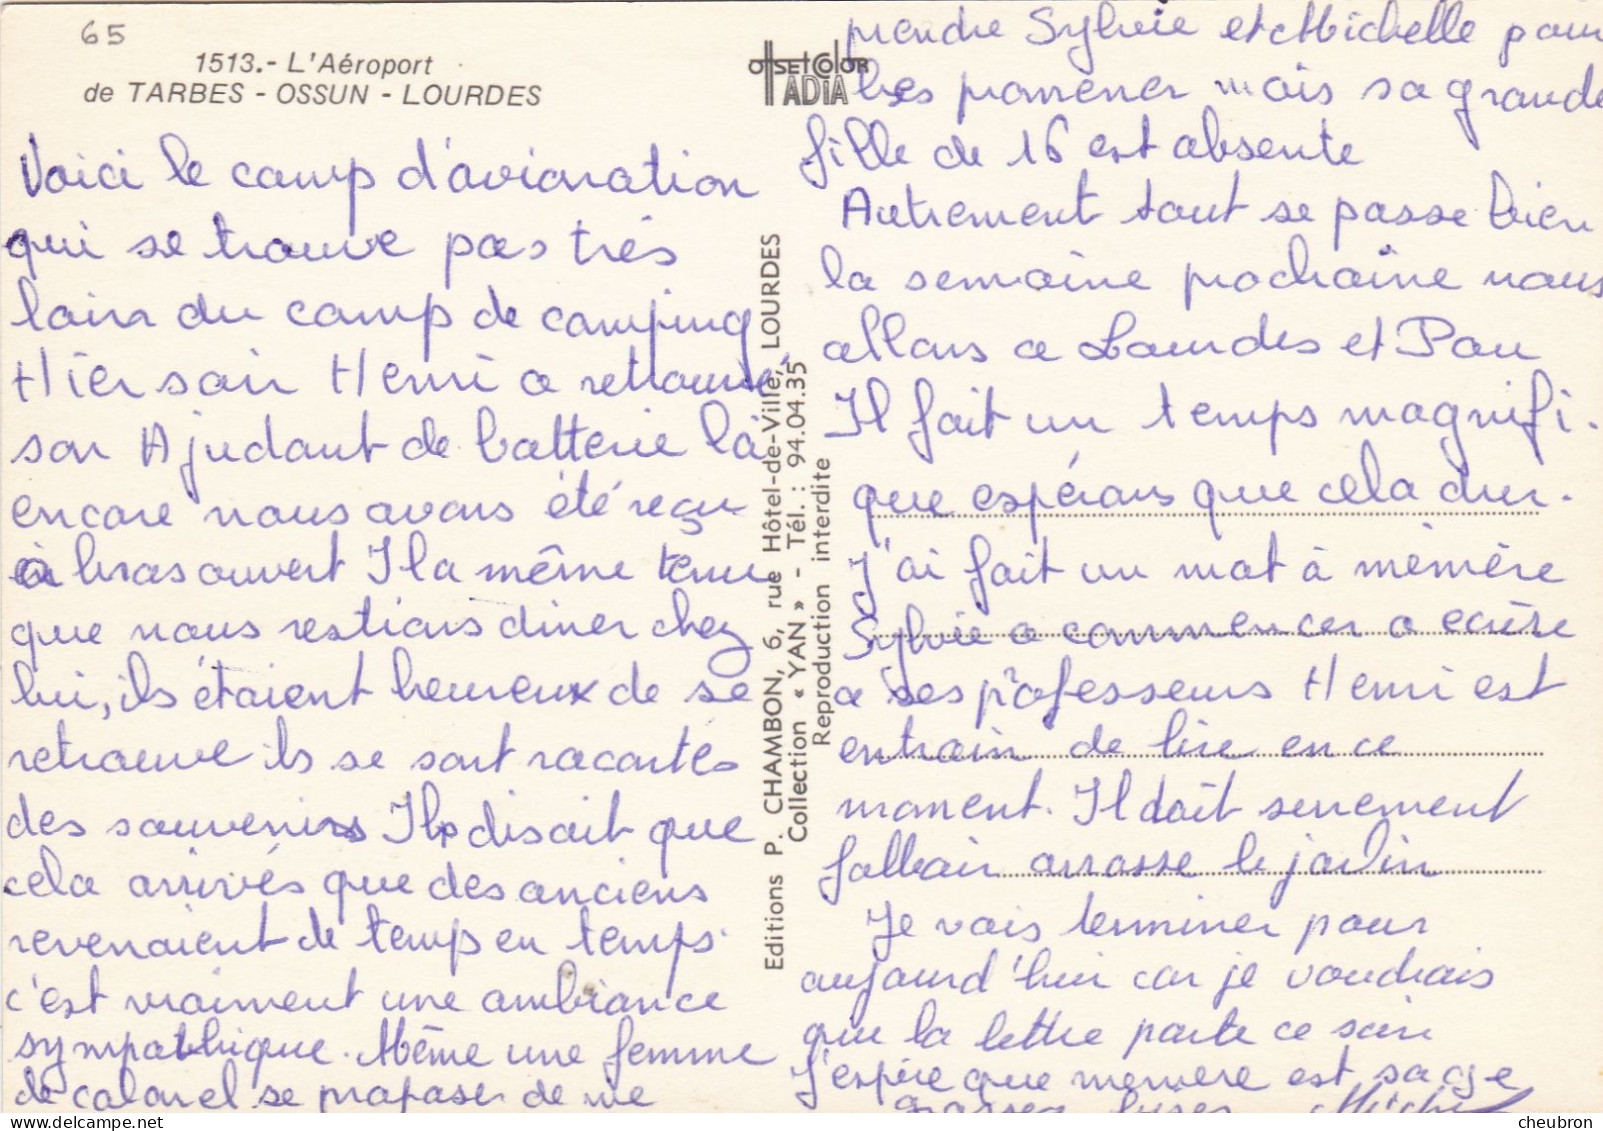 65
1513.- L'Aéroport
de TARBES - OSSUN - LOURDES
Voici le camp d'avionation
qui se trouve pas très
loin du camp de camping
Hier soir Henri a retrouvé
son Ajudant de batterie là
encore nous avons été reçu
à bras ouvert Il a même tenu
que nous restions diner chez
lui, ils étaient heureux de se
retrouve ils se sont racontés
des souvenirs Ils disait que
cela arrivés que des anciens
revenaient de temps en temps
c'est vraiment une ambiance
sympathique. Même une femme
de colonel se propose de me
OffSETCOlOR
IADIA
Editions P. CHAMBON, 6, rue Hôtel-de-Ville, LOURDES
Collection « YAN » - Tél. : 94.04.35
Reproduction interdite
prendre Sylvie et Michelle pour
les promener mais sa grande
fille de 16 est absente
Autrement tout se passe bien
la semaine prochaine nous
allons a Lourdes et Pau
Il fait un temps magnifi-
que espérons que cela dur.
J'ai fait un mot à mémère
Sylvie a commencer a ecrire
a ses professeurs Henri est
entrain de lire en ce
moment. Il doit surement
falloir arrosse le jardin
Je vais terminer pour
aujourd'hui car je voudrais
que la lettre parte ce soir
J'espère que memere est sage
grosses bises Michel
cheubron.com